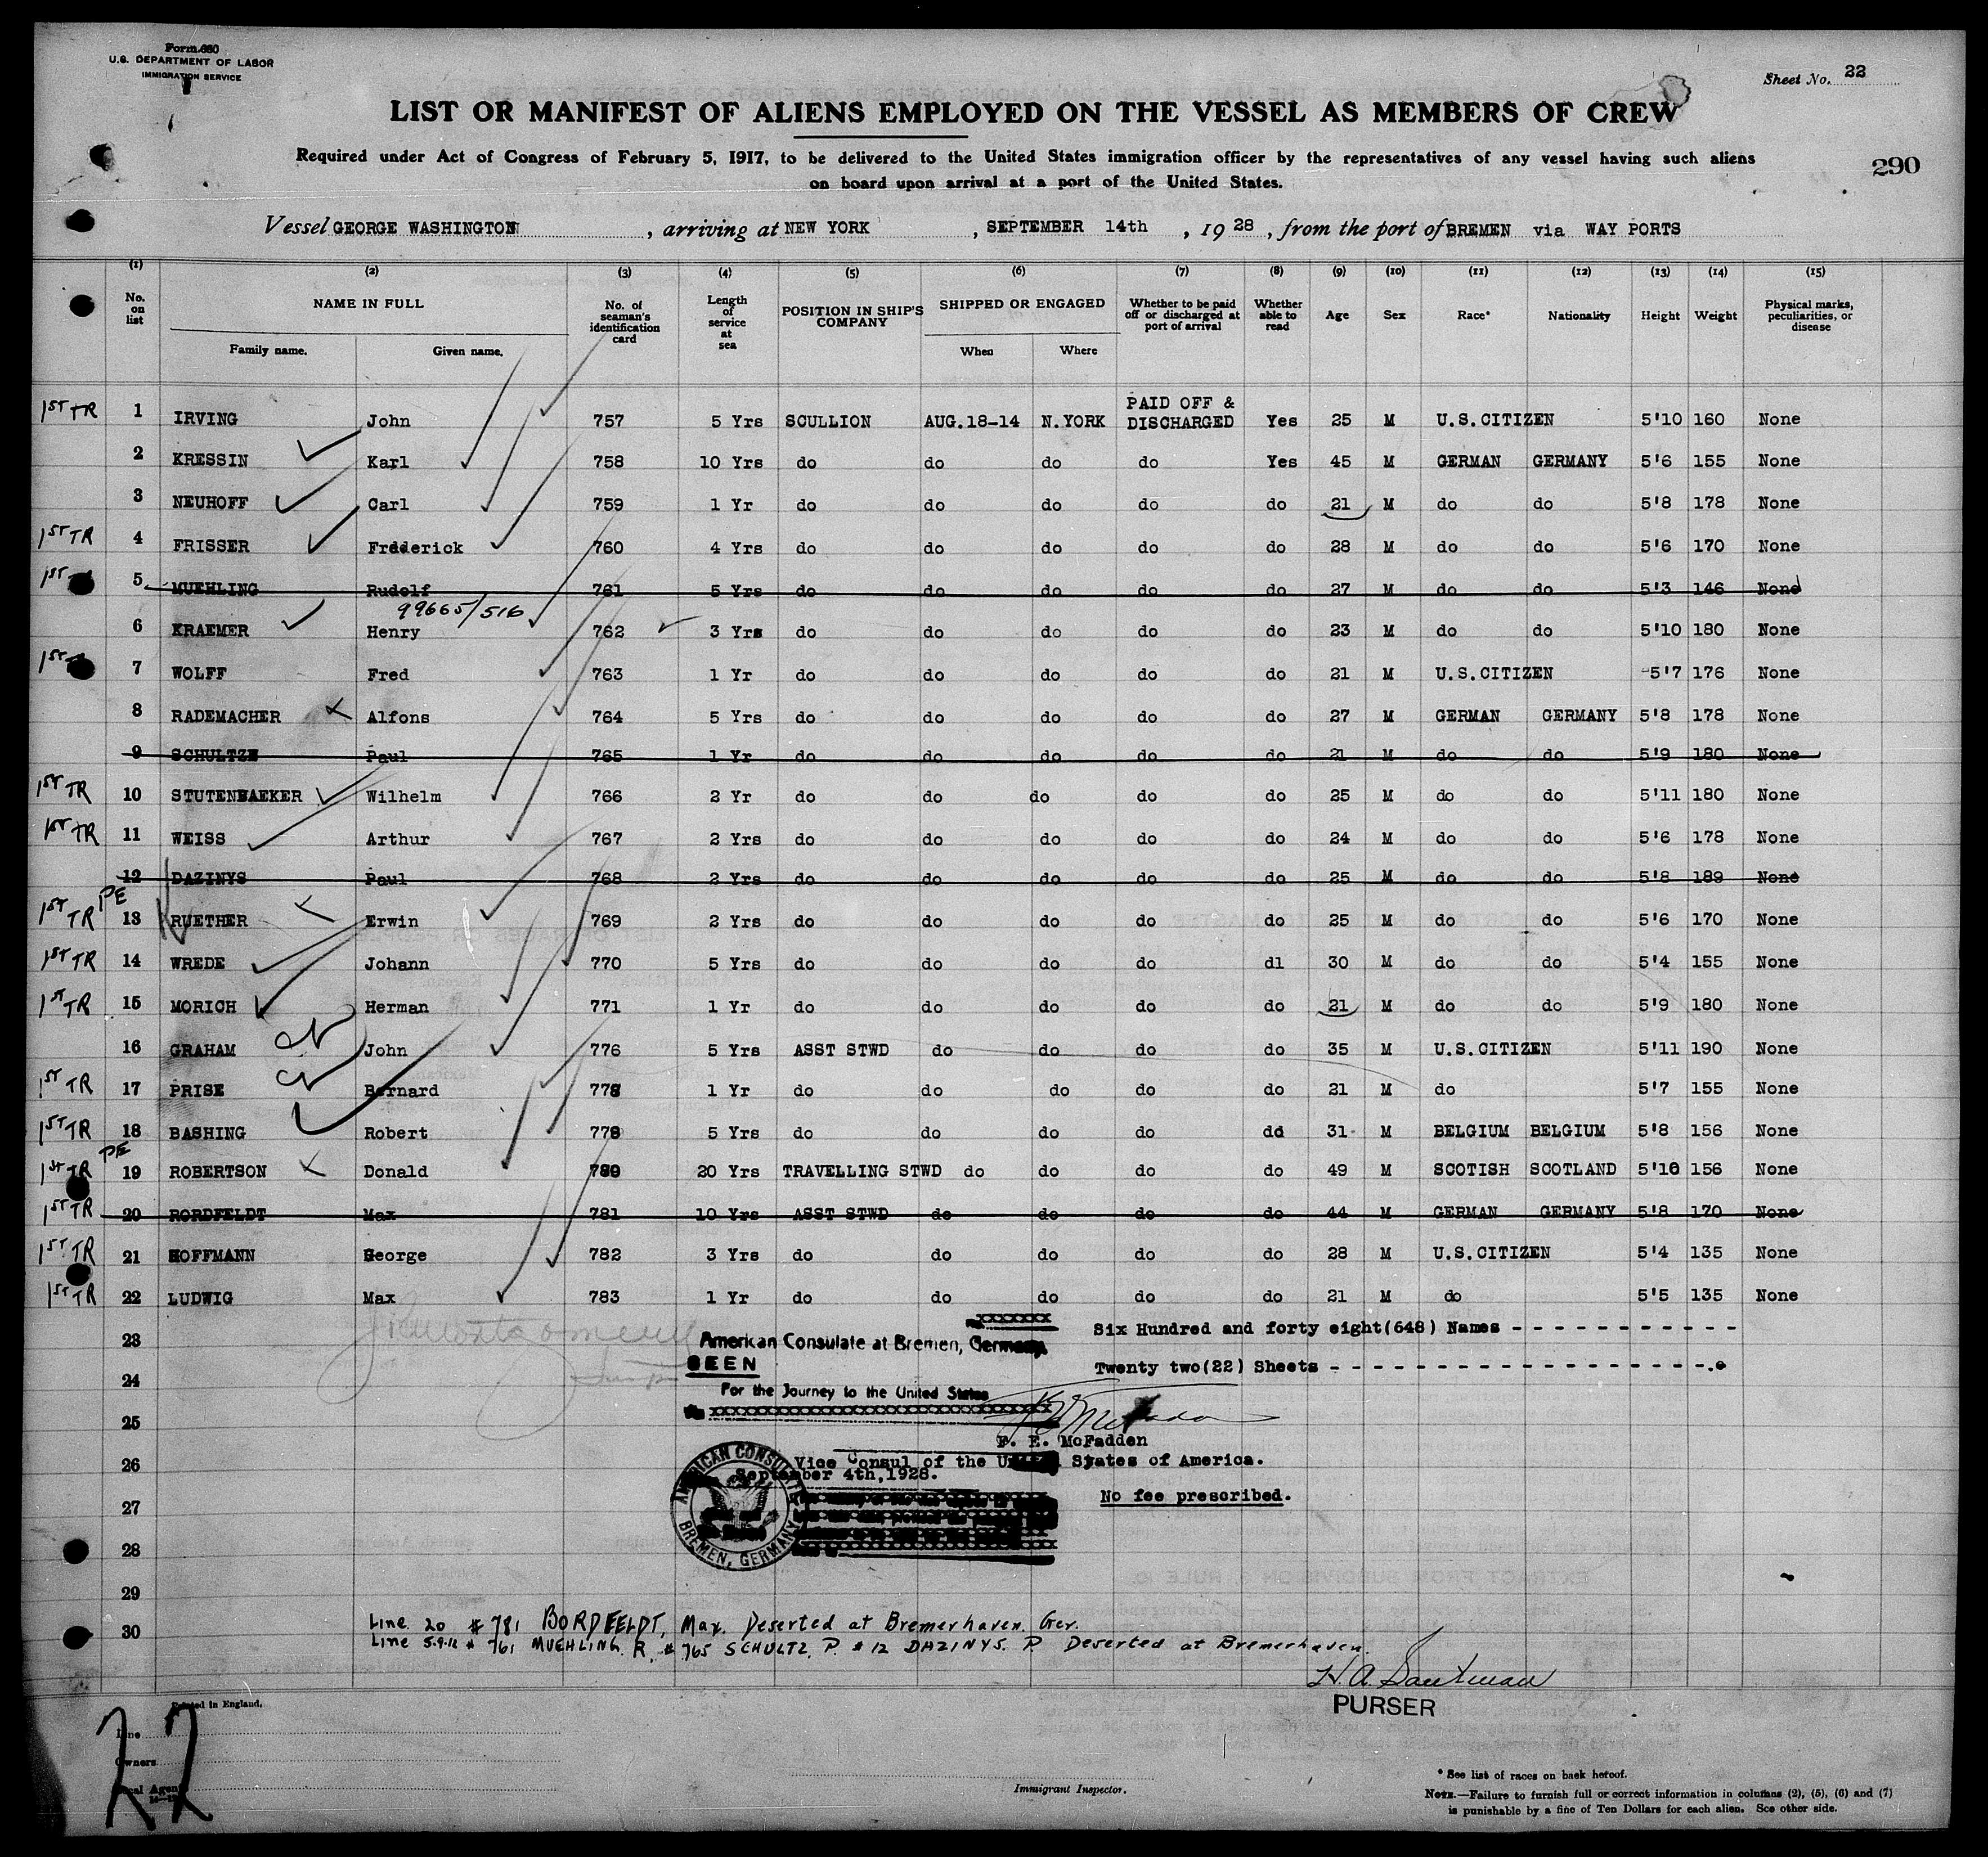 Form 680
U.S. DEPARTMENT OF LABOR
IMMIGRATION SERVICE
Sheet No. 22
LIST OR MANIFEST OF ALIENS EMPLOYED ON THE VESSEL AS MEMBERS OF CREW
Required under Act of Congress of February 5, 1917, to be delivered to the United States immigration officer by the representatives of any vessel having such aliens
on board upon arrival at a port of the United States.
290
Vessel GEORGE WASHINGTON, arriving at NEW YORK, SEPTEMBER 14th, 1928, from the port of BREMEN via WAY PORTS
(1) (2) (3) (4) (5) (6) (7) (8) (9) (10) (11) (12) (13) (14) (15)
No. on list NAME IN FULL Family name. Given name. No. of seaman's identification card Length of service at sea POSITION IN SHIP'S COMPANY SHIPPED OR ENGAGED When Where Whether to be paid off or discharged at port of arrival Whether able to read Age Sex Race* Nationality Height Weight Physical marks, peculiarities, or disease
1ST TR 1 IRVING John 757 5 Yrs SCULLION AUG.18-14 N.YORK PAID OFF & DISCHARGED Yes 25 M U.S.CITIZEN 5'10 160 None
2 KRESSIN Karl 758 10 Yrs do do do do Yes 45 M GERMAN GERMANY 5'6 155 None
3 NEUHOFF Carl 759 1 Yr do do do do do 21 M do do 5'8 178 None
1ST TR 4 FRISSER Frederick 760 4 Yrs do do do do do 28 M do do 5'6 170 None
1ST 5 MUEHLING Rudolf 761 5 Yrs do do do do do 27 M do do 5'3 146 None
99665/516
6 KRAEMER Henry 762 3 Yrs do do do do do 23 M do do 5'10 180 None
1ST 7 WOLFF Fred 763 1 Yr do do do do do 21 M U.S.CITIZEN 5'7 176 None
8 RADEMACHER Alfons 764 5 Yrs do do do do do 27 M GERMAN GERMANY 5'8 178 None
9 SCHULTZE Paul 765 1 Yr do do do do do 21 M do do 5'9 180 None
1ST TR 10 STUTENBAEKER Wilhelm 766 2 Yr do do do do do 25 M do do 5'11 180 None
1ST TR 11 WEISS Arthur 767 2 Yrs do do do do do 24 M do do 5'6 178 None
12 DAZINYS Paul 768 2 Yrs do do do do do 25 M do do 5'8 189 None
1ST TR PE 13 RUETHER Erwin 769 2 Yrs do do do do do 25 M do do 5'6 170 None
1ST TR 14 WREDE Johann 770 5 Yrs do do do do dl 30 M do do 5'4 155 None
1ST TR 15 MORICH Herman 771 1 Yr do do do do do 21 M do do 5'9 180 None
16 GRAHAM John 776 5 Yrs ASST STWD do do do do 35 M U.S.CITIZEN 5'11 190 None
1ST TR 17 PRISE Bernard 778 1 Yr do do do do do 21 M do 5'7 155 None
1ST TR 18 BASHING Robert 5 Yrs do do do do dd 31 M BELGIUM BELGIUM 5'8 156 None
1ST TR PE 19 ROBERTSON Donald 780 20 Yrs TRAVELLING STWD do do do do 49 M SCOTISH SCOTLAND 5'10 156 None
1ST TR 20 RORDFELDT Max 781 10 Yrs ASST STWD do do do do 44 M GERMAN GERMANY 5'8 170 None
1ST TR 21 HOFFMANN George 782 3 Yrs do do do do do 28 M U.S.CITIZEN 5'4 135 None
1ST TR 22 LUDWIG Max 783 1 Yr do do do do do 21 M do 5'5 135 None
23
24
25
26
27
28
29
30
American Consulate at Bremen, Germany.
SEEN
For the Journey to the United States
Six Hundred and forty eight(648) Names - - - - - - - - - - -
Twenty two(22) Sheets - - - - - - - - - - - - - - - - - -
F. E. McFadden
Vice Consul of the United States of America.
September 4th,1928.
No fee prescribed.
AMERICAN CONSULATE
BREMEN, GERMANY
Line 20 # 781 BORDFELDT, Max. Deserted at Bremerhaven. Ger.
Line 5-9-12 # 761 MUEHLING. R. # 765 SCHULTZ. P. # 12 DAZINYS. P. Deserted at Bremerhaven.
PURSER
Printed in England.
Line
Owners
Local Agent
22
Immigrant Inspector.
* See list of races on back hereof.
NOTE.—Failure to furnish full or correct information in columns (2), (5), (6) and (7)
is punishable by a fine of Ten Dollars for each alien. See other side.